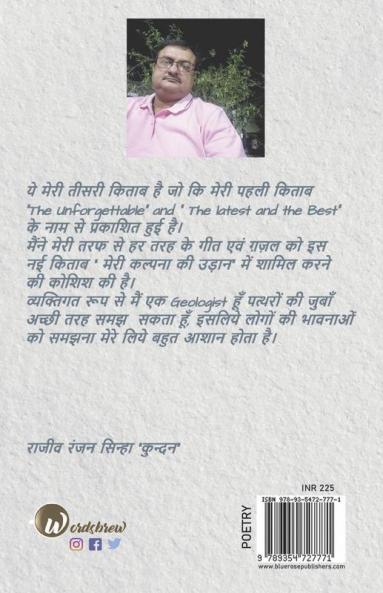 ये मेरी तीसरी किताब है जो कि मेरी पहली किताब
"The Unforgettable" and " The latest and the Best"
के नाम से प्रकाशित हुई है।
मैंने मेरी तरफ से हर तरह के गीत एवं ग़ज़ल को इस
नई किताब " मेरी कल्पना की उड़ान" में शामिल करने
की कोशिश की है।
व्यक्तिगत रूप से मैं एक Geologist हूँ पत्थरों की जुबाँ
अच्छी तरह समझ सकता हूँ, इसलिये लोगों की भावनाओं
को समझना मेरे लिये बहुत आशान होता है।
राजीव रंजन सिन्हा "कुन्दन"
Wordsbrew
POETRY
INR 225
ISBN 978-93-5472-777-1
9 789354 727771
www.bluerosepublishers.com